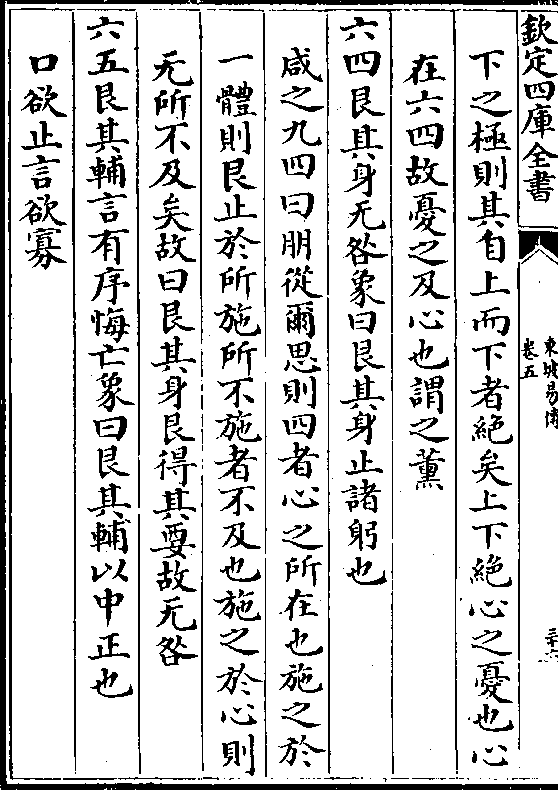 欽定四庫全書
東坡易傳
卷五
下之極則其自上而下者絶矣上下絶心之憂也心
在六四故憂之及心也謂之薫
六四艮其身无咎象曰艮其身止諸躬也
咸之九四曰朋從爾思則四者心之所在也施之於
一體則艮止於所施所不施者不及也施之於心則
无所不及矣故曰艮其身艮得其要故无咎
六五艮其輔言有序悔亡象曰艮其輔以中正也
口欲止言欲寡